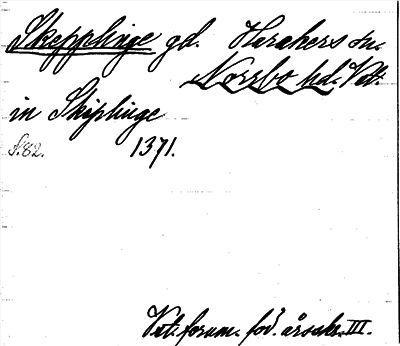 Skepplinge gd. Harakers sn.
Norrbo hd. Vstm.
in Skiplinge
S. 82. 1371.
Vst. fornm. för. årsskr. III.